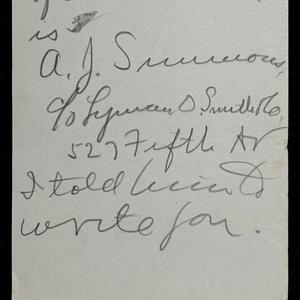 is
A. J. Simmons,
c/o Lyman D. Smith Co,
527 Fifth Av
I told him to
write you.